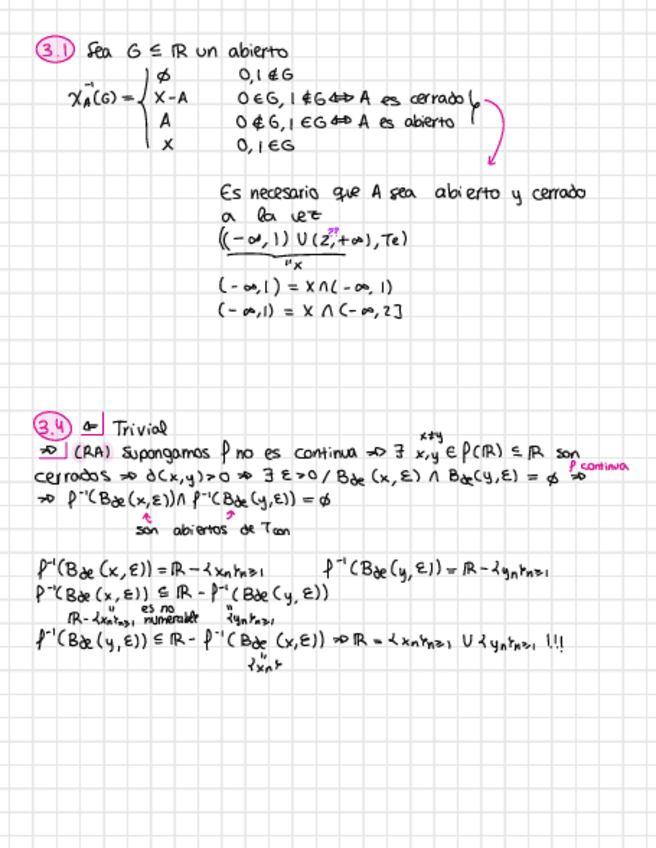 3.1 Sea G ⊆ ℝ un abierto
χ_A⁻¹(G) = { ∅ 0,1 ∉ G
X-A 0∈G, 1∉G ⇔ A es cerrado
A 0∉G, 1∈G ⇔ A es abierto
X 0,1∈G
Es necesario que A sea abierto y cerrado
a la vez
((-∞,1) ∪ (2,+∞), Te)
??
"x
(-∞,1) = X∩(-∞,1)
(-∞,1) = X∩(-∞,2]
3.4 ⇐| Trivial
⇒| (RA) Supongamos f no es continua ⇒ ∃ x,y ∈ f(ℝ) ⊆ ℝ son
x≠y
cerrados ⇒ d(x,y)>0 ⇒ ∃ ε>0 / B_de(x,ε) ∩ B_de(y,ε) = ∅ ⇒
f continua
⇒ f⁻¹(B_de(x,ε)) ∩ f⁻¹(B_de(y,ε)) = ∅
son abiertos de T_con
f⁻¹(B_de(x,ε)) = ℝ-{xn}n≥1 f⁻¹(B_de(y,ε)) = ℝ-{yn}n≥1
f⁻¹(B_de(x,ε)) ⊆ ℝ - f⁻¹(B_de(y,ε))
ℝ-{xn}n≥1 es no numerable {yn}n≥1
f⁻¹(B_de(y,ε)) ⊆ ℝ - f⁻¹(B_de(x,ε)) ⇒ ℝ = {xn}n≥1 ∪ {yn}n≥1 !!!
{xn}